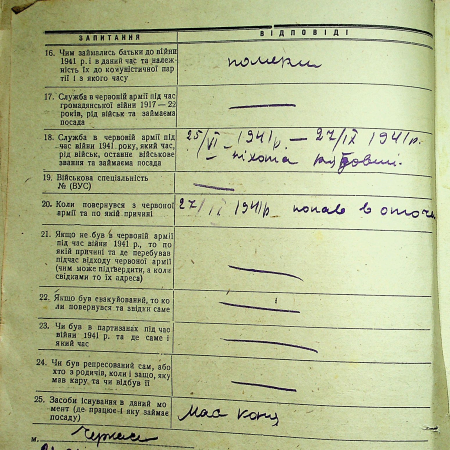 ЗАПИТАННЯ ВІДПОВІДІ
16. Чим займались батьки до війни
1941 р. і в даний час та належ-
ність їх до комуністичної пар-
тії і з якого часу
померли
17. Служба в червоній армії під час
громадянської війни 1917 — 22
років, рід військ та займаєма
посада
18. Служба в червоній армії під
час війни 1941 року, який час,
рід військ, останнє військове
звання та займаєма посада
25/VI – 1941р. — 27/IX 1941р.
– піхота рядовий.
19. Військова спеціальність
№ (ВУС)
20. Коли повернувся з червоної
армії та по якій причині
27/IX 1941р. попав в оточ.
21. Якщо не був в червоній армії
під час війни 1941 р., то по
якій причині та де перебував
підчас відходу червоної армії
(чим може підтвердити, а коли
свідками то їх адреса)
22. Якщо був евакуйований, то ко-
ли повернувся та звідки саме
23. Чи був в партизанах під час
війни 1941 р. та де саме і
який час
24. Чи був репресований сам, або
хто з родичів, коли і защо, яку
мав кару, та чи відбув її
25. Засоби існування в даний мо-
мент (де працює і яку займає
посаду)
м. Черкаси